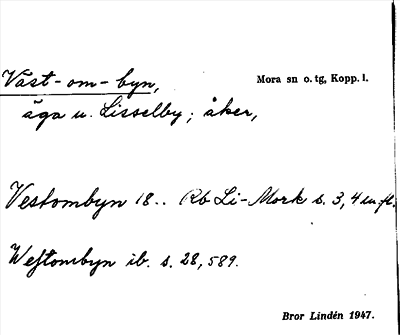 Väst-om-byn, Mora sn o. tg, Kopp. l.
äga u. Lisselby; åker,
Vestombyn 18.. Rb Li-Mork s. 3, 4 m.fl.
Westombyn ib. s. 28, 589.
Bror Lindén 1947.